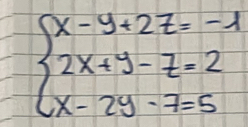 x - y + 2z = -1
2x + y - z = 2
x - 2y - z = 5